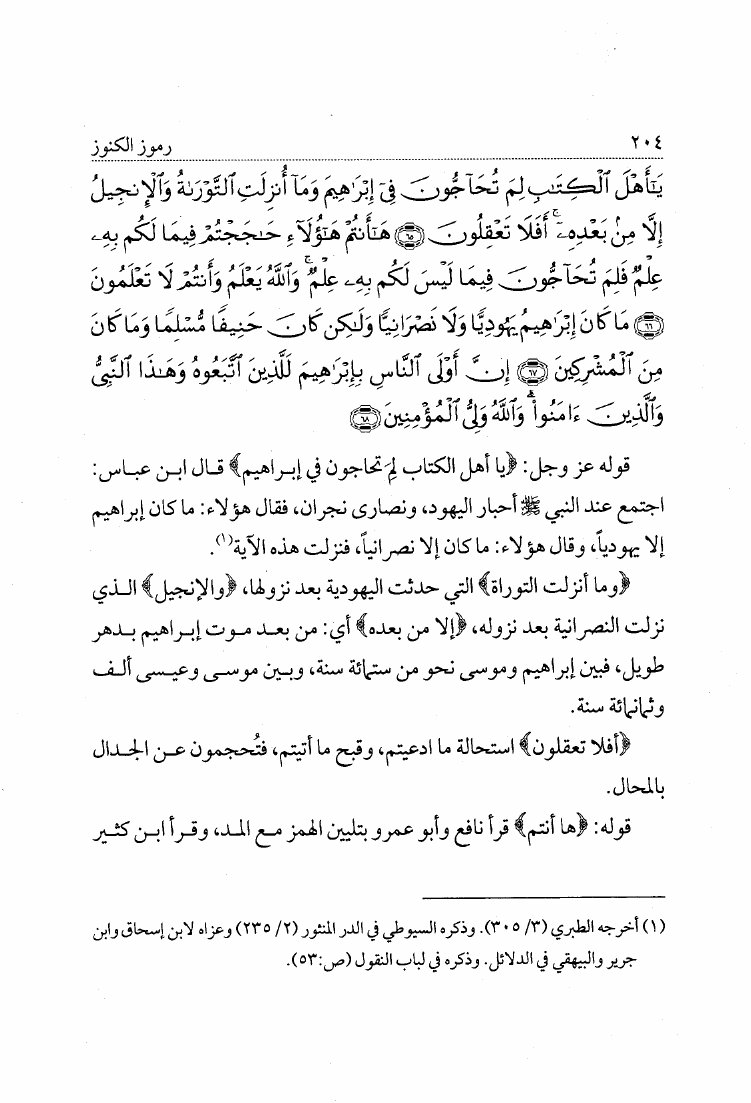 ٢٠٤ رموز الكنوز
يَٰٓأَهْلَ ٱلْكِتَٰبِ لِمَ تُحَآجُّونَ فِىٓ إِبْرَٰهِيمَ وَمَآ أُنزِلَتِ ٱلتَّوْرَىٰةُ وَٱلْإِنجِيلُ
إِلَّا مِنۢ بَعْدِهِۦٓ ۚ أَفَلَا تَعْقِلُونَ ٦٥ هَٰٓأَنتُمْ هَٰٓؤُلَآءِ حَٰجَجْتُمْ فِيمَا لَكُم بِهِۦ
عِلْمٌ فَلِمَ تُحَآجُّونَ فِيمَا لَيْسَ لَكُم بِهِۦ عِلْمٌ ۚ وَٱللَّهُ يَعْلَمُ وَأَنتُمْ لَا تَعْلَمُونَ
٦٦ مَا كَانَ إِبْرَٰهِيمُ يَهُودِيًّا وَلَا نَصْرَانِيًّا وَلَٰكِن كَانَ حَنِيفًا مُّسْلِمًا وَمَا كَانَ
مِنَ ٱلْمُشْرِكِينَ ٦٧ إِنَّ أَوْلَى ٱلنَّاسِ بِإِبْرَٰهِيمَ لَلَّذِينَ ٱتَّبَعُوهُ وَهَٰذَا ٱلنَّبِىُّ
وَٱلَّذِينَ ءَامَنُوا۟ ۗ وَٱللَّهُ وَلِىُّ ٱلْمُؤْمِنِينَ ٦٨
قوله عز وجل: ﴿يا أهل الكتاب لِمَ تحاجون في إبراهيم﴾ قال ابن عباس:
اجتمع عند النبي ﷺ أحبار اليهود، ونصارى نجران، فقال هؤلاء: ما كان إبراهيم
إلا يهودياً، وقال هؤلاء: ما كان إلا نصرانياً، فنزلت هذه الآية(١).
﴿وما أنزلت التوراة﴾ التي حدثت اليهودية بعد نزولها، ﴿والإنجيل﴾ الذي
نزلت النصرانية بعد نزوله، ﴿إلا من بعده﴾ أي: من بعد موت إبراهيم بدهر
طويل، فبين إبراهيم وموسى نحو من ستمائة سنة، وبين موسى وعيسى ألف
وثمانمائة سنة.
﴿أفلا تعقلون﴾ استحالة ما ادعيتم، وقبح ما أتيتم، فتُحجمون عن الجدال
بالمحال.
قوله: ﴿ها أنتم﴾ قرأ نافع وأبو عمرو بتليين الهمز مع المد، وقرأ ابن كثير
(١) أخرجه الطبري (٣/ ٣٠٥). وذكره السيوطي في الدر المنثور (٢/ ٢٣٥) وعزاه لابن إسحاق وابن
جرير والبيهقي في الدلائل. وذكره في لباب النقول (ص:٥٣).